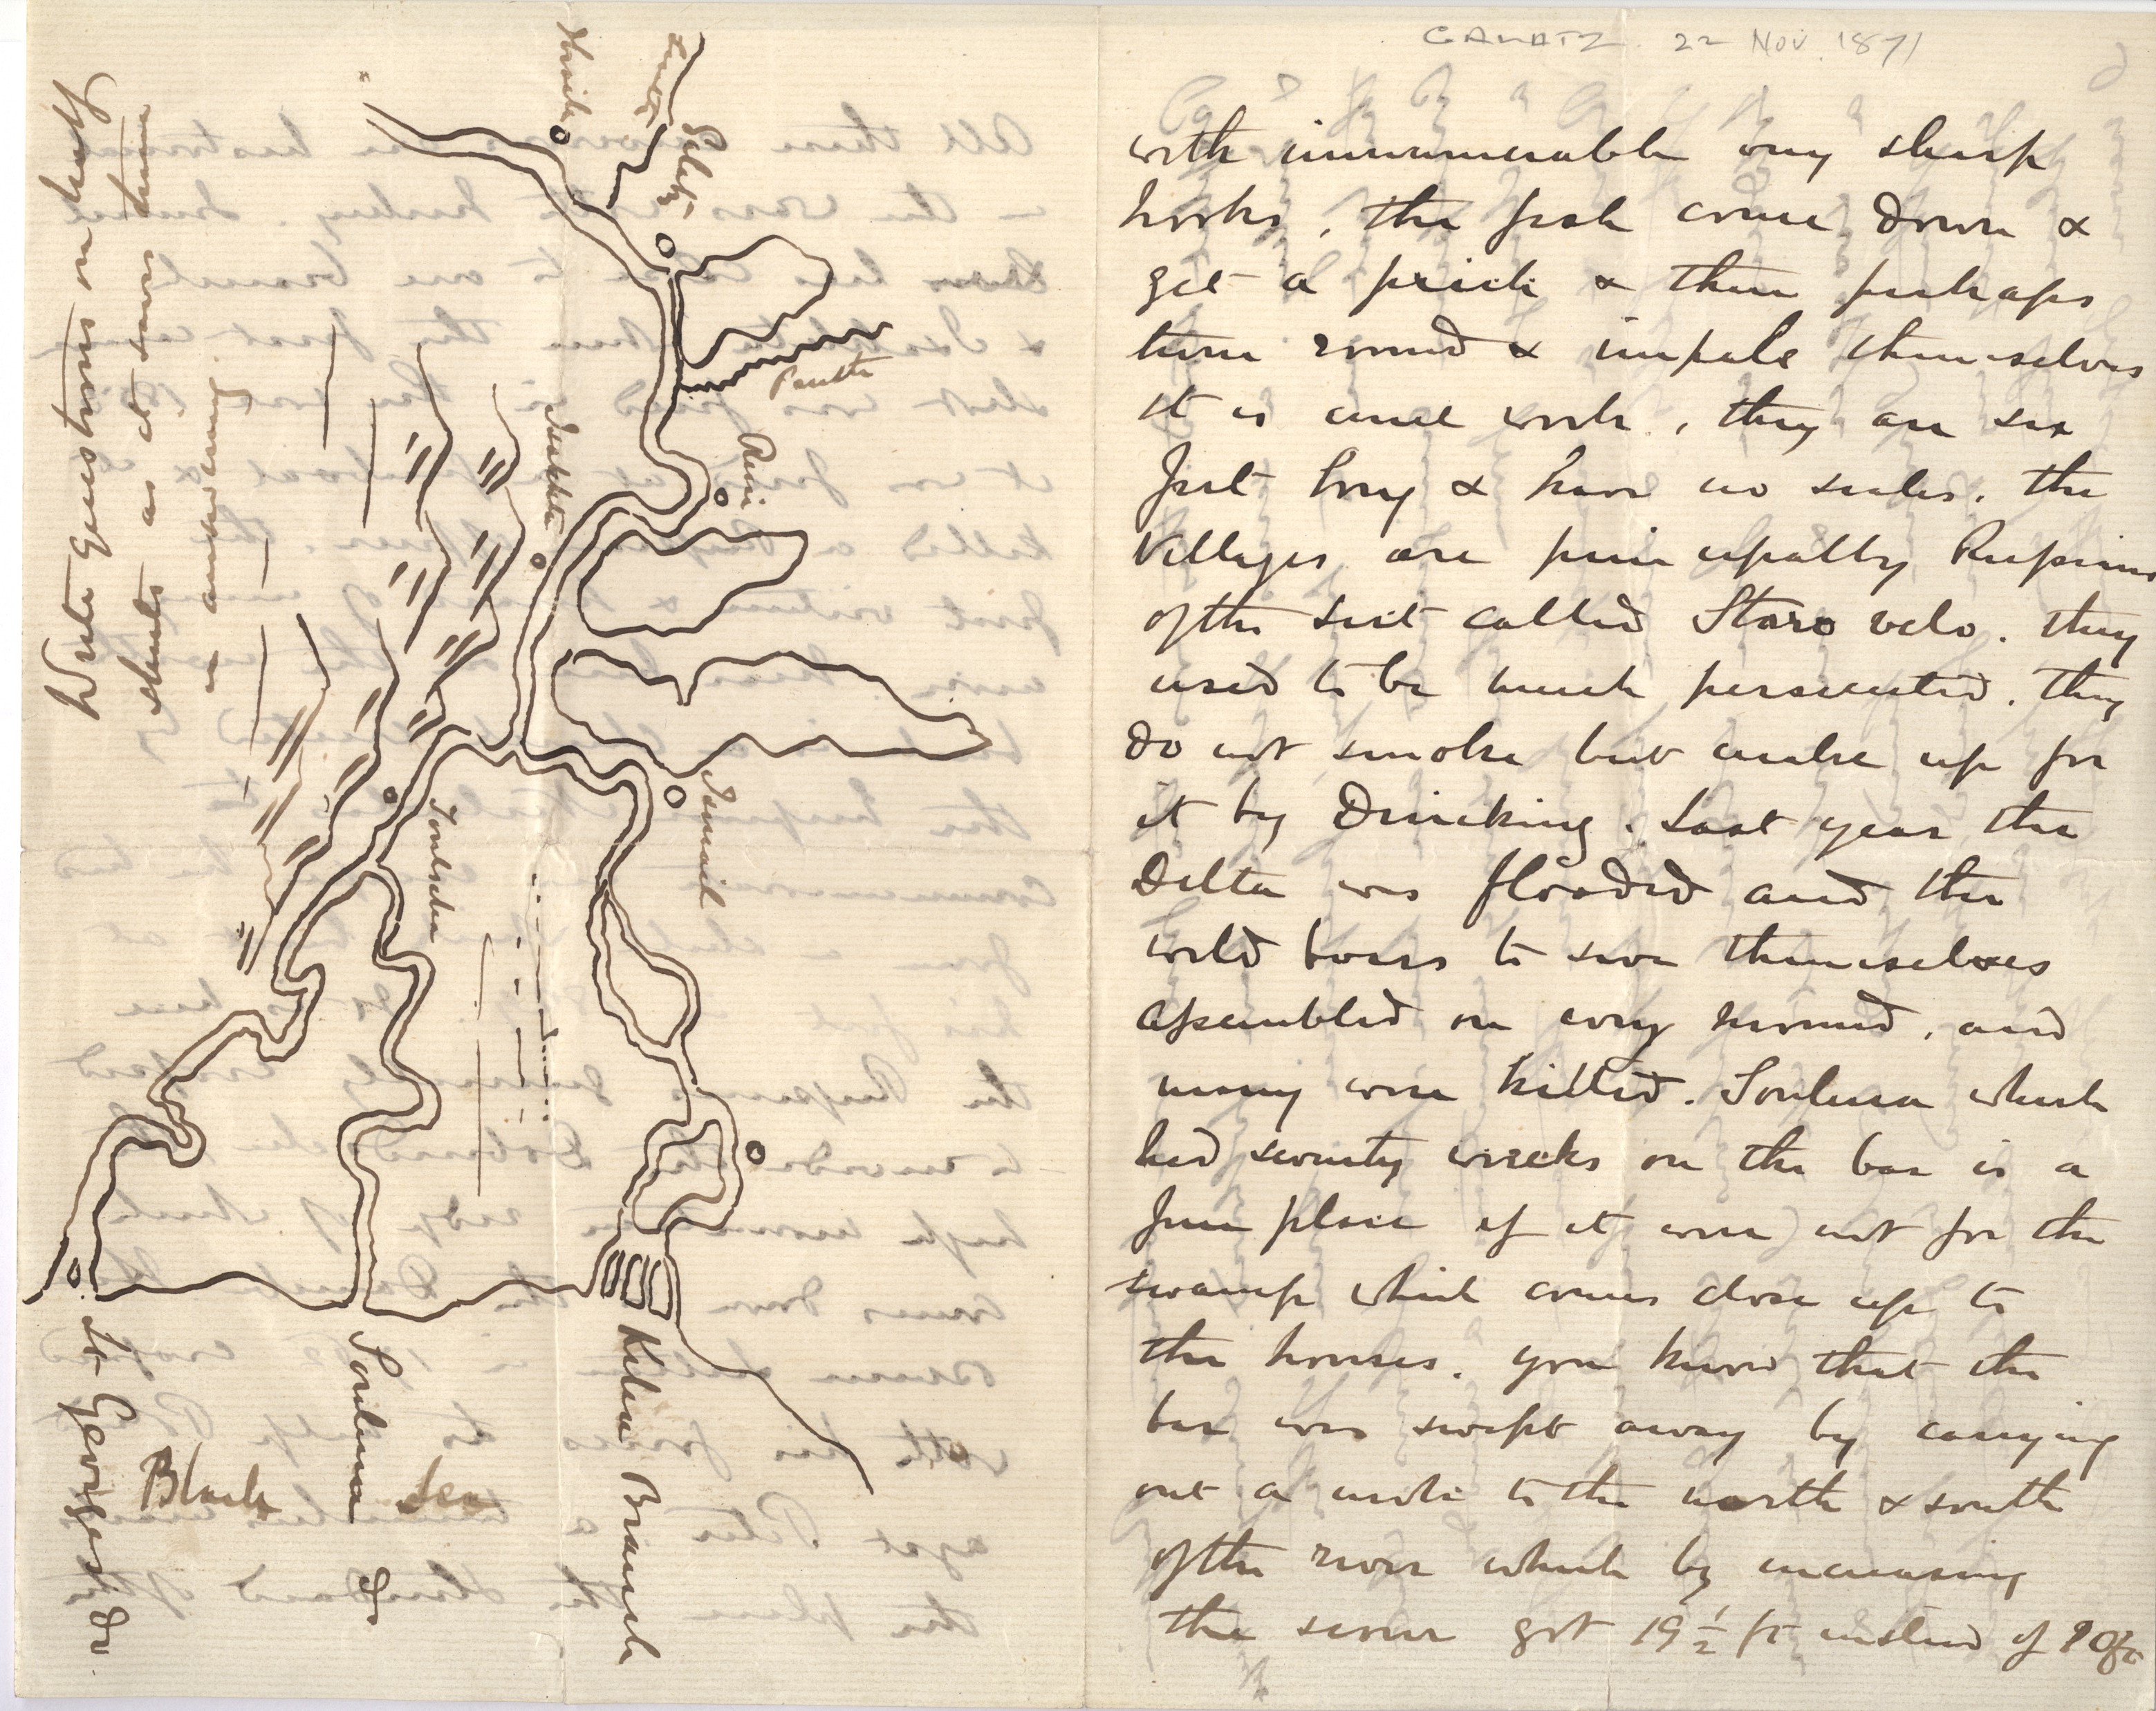 Write questions on half
sheets as it saves time
in answering
Hirsova
Galatz
Pruth
Reni
Isaktcha
Ismail
Toultcha
Kilia Branch
Soulina Do
St Georges Do.
Black Sea
GALATZ 22 NOV. 1871
with innumerable very sharp
hooks, the fish come down &
get a prick & then perhaps
turn round & impale themselves
it is cruel work, they are six
feet long & have no scales. The
Villages are principally Russians
of the sect called Staro velo. They
used to be much persecuted. They
do not smoke but make up for
it by Drinking. Last year the
Delta was flooded and the
wild boars to save themselves
assembled on every mound, and
many were killed. Soulina which
had seventy wrecks on the bar is a
fine place if it were not for the
swamp which comes close up to
the houses. You know that the
bar was swept away by carrying
out a mole to the north & south
of the river which by increasing
the scour got 19 1/2 ft instead of